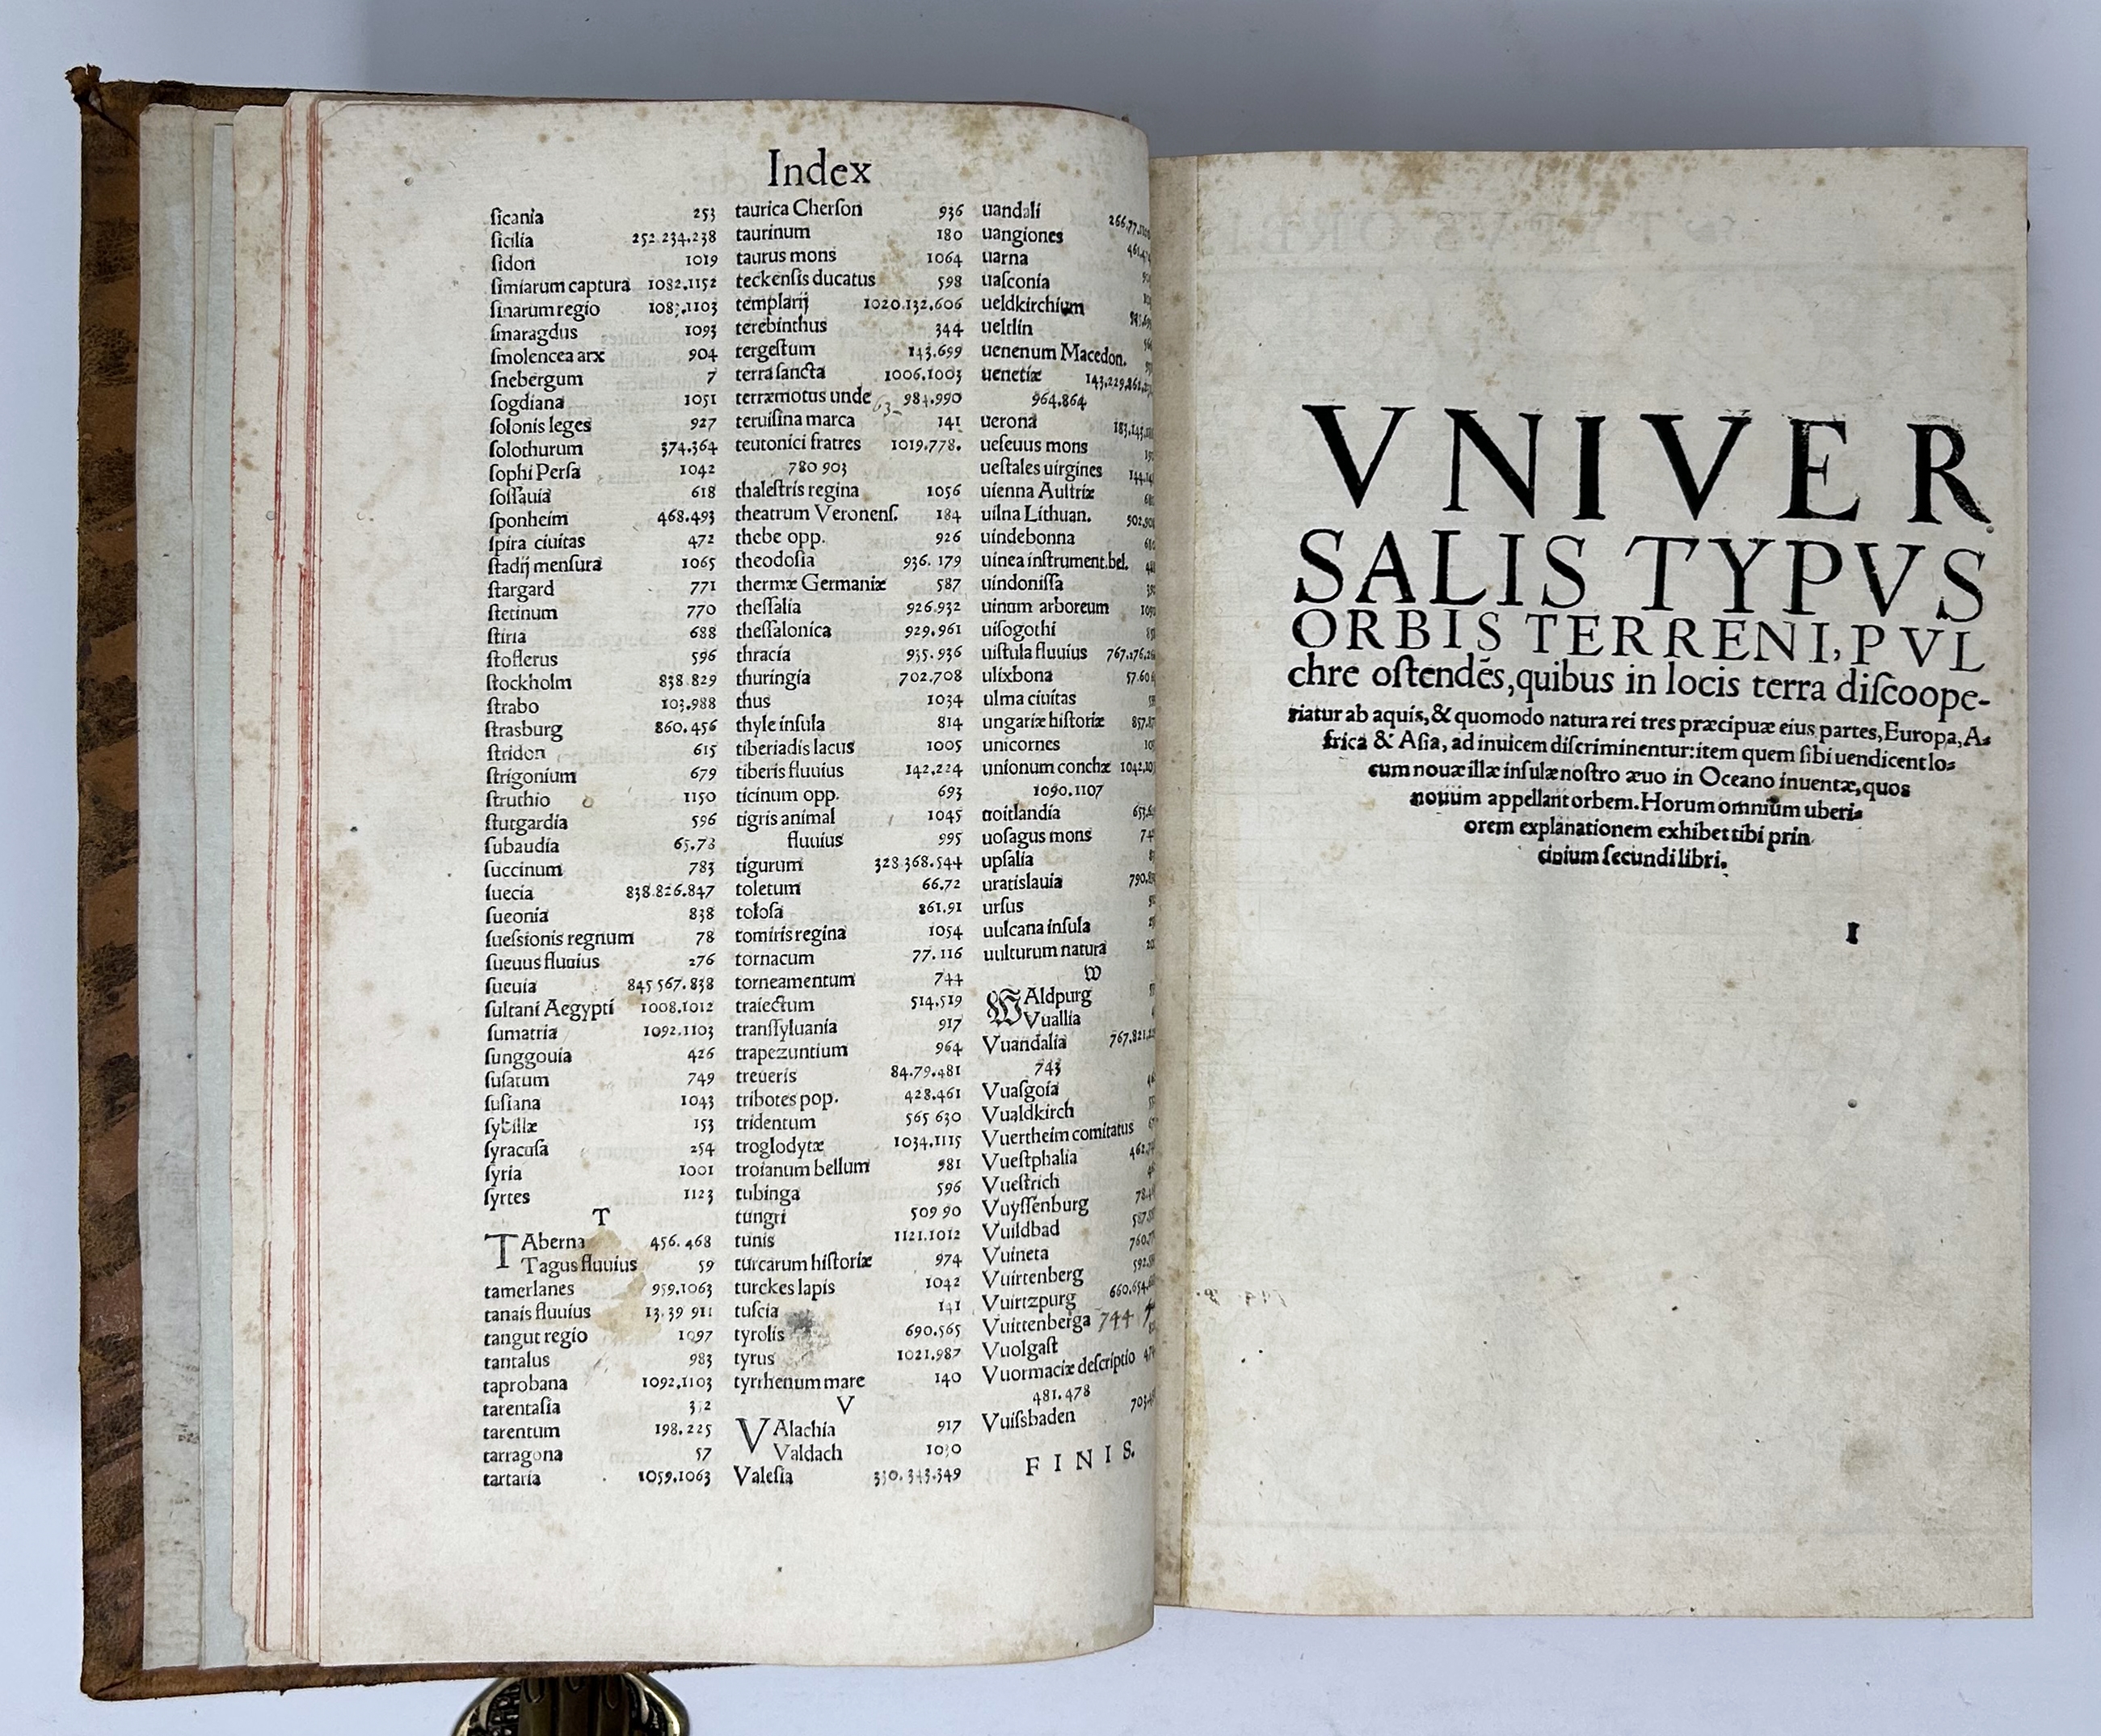 Index
ſicania 253
ſicilia 252.234.238
ſidon 1019
ſimiarum captura 1082.1152
ſinarum regio
ſmaragdus 1093
ſmolencea arx 904
ſnebergum 7
ſogdiana 1051
ſolonis leges 927
ſolothurum 374.364
ſophi Perſa 1042
ſoſſauia 618
ſponheim 468.493
ſpira ciuitas 472
ſtadij menſura 1065
ſtargard 771
ſtetinum 770
ſtiria 688
ſtoflerus 596
ſtockholm 838.829
ſtrabo 103.988
ſtrasburg 860.456
ſtridon 615
ſtrigonium 679
ſtruthio 1150
ſtutgardia 596
ſubaudia 65.78
ſuccinum 783
ſuecia 838.826.847
ſueonia 838
ſueſsionis regnum 78
ſueuus fluuius 276
ſueuia 845 567.838
ſultani Aegypti 1008.1012
ſumatria 1092.1103
ſunggouia 426
ſuſatum 749
ſuſiana 1043
ſybillæ 153
ſyracuſa 254
ſyria 1001
ſyrtes 1123
T
TAberna 456.468
Tagus fluuius 59
tamerlanes 959.1063
tanais fluuius 13.39 911
tangut regio 1097
tantalus 983
taprobana 1092.1103
tarentaſia
tarentum 198.225
tarragona 57
tartaria 1059.1063
taurica Cherſon 936
taurinum 180
taurus mons 1064
teckenſis ducatus 598
templarij 1020.132.606
terebinthus 344
tergeſtum 143.699
terra ſancta 1006.1003
terræmotus unde 984.990
teruiſina marca 141
teutonici fratres 1019.778.
780 903
thaleſtris regina 1056
theatrum Veronenſ. 184
thebe opp. 926
theodoſia 936.179
thermæ Germaniæ 587
theſſalia 926.932
theſſalonica 929.961
thracia 935.936
thuringia 702.708
thus 1034
thyle inſula 814
tiberiadis lacus 1005
tiberis fluuius 142.224
ticinum opp. 693
tigris animal 1045
fluuius 995
tigurum 328.368.544
toletum 66.72
toloſa 861.91
tomiris regina 1054
tornacum 77.116
torneamentum 744
traiectum 514.519
tranſſyluania 917
trapezuntium 964
treueris 84.79.481
tribotes pop. 428.461
tridentum 565 630
troglodytæ 1034.1115
troianum bellum 981
tubinga 596
tungri 509 90
tunis 1121.1012
turcarum hiſtoriæ 974
turckes lapis 1042
tuſcia 141
tyrolis 690.565
tyrus 1021.987
tyrrhenum mare 140
V
VAlachia 917
Valdach
Valeſia 330.343.349
uandali
uangiones
uarna
uaſconia
ueldkirchium
ueltlin
uenenum Macedon.
uenetiæ 143.229.861.
964.864
uerona
ueſeuus mons
ueſtales uirgines
uienna Auſtriæ
uilna Lithuan.
uindebonna
uinea inſtrument.bel.
uindoniſſa
uinum arboreum
uiſogothi
uiſtula fluuius
ulixbona
ulma ciuitas
ungariæ hiſtoriæ
unicornes
unionum conchæ
1090.1107
uoitlandia
uoſagus mons
upſalia
uratislauia
urſus
uulcana inſula
uulturum natura
W
WAldpurg
Vuallia
Vuandalia
743
Vuaſgoia
Vualdkirch
Vuertheim comitatus
Vueſtphalia
Vueſtrich
Vuyſſenburg
Vuildbad
Vuineta
Vuirtenberg
Vuirtzpurg
Vuittenberga 744
Vuolgaſt
Vuormaciæ deſcriptio
481.478
Vuiſsbaden
FINIS.
VNIVER
SALIS TYPVS
ORBIS TERRENI, PVL
chre oſtendēs, quibus in locis terra diſcoope-
riatur ab aquis, & quomodo natura rei tres præcipuæ eius partes, Europa, A-
frica & Aſia, ad inuicem diſcriminentur: item quem ſibi uendicent lo-
cum nouæ illæ inſulæ noſtro æuo in Oceano inuentæ, quos
nouum appellant orbem. Horum omnium uberi-
orem explanationem exhibet tibi prin
cipium ſecundi libri.
1